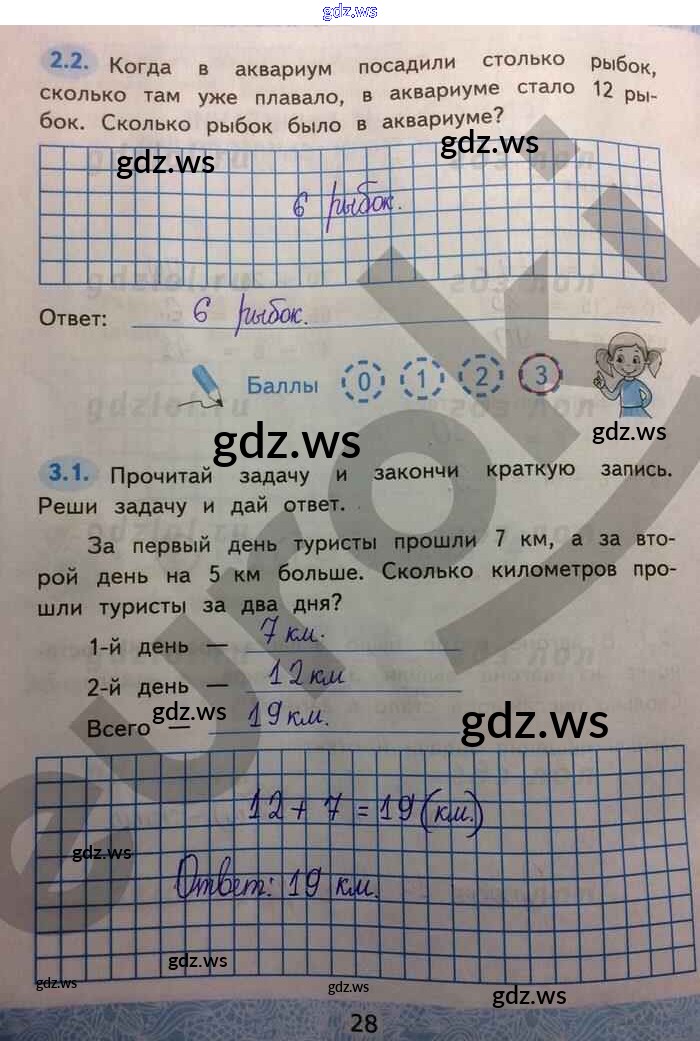 gdz.ws
2.2. Когда в аквариум посадили столько рыбок,
сколько там уже плавало, в аквариуме стало 12 ры-
бок. Сколько рыбок было в аквариуме?
gdz.ws
gdz.ws
6 рыбок.
Ответ: 6 рыбок.
Баллы 0 1 2 3
gdz.ws
gdz.ws
3.1. Прочитай задачу и закончи краткую запись.
Реши задачу и дай ответ.
За первый день туристы прошли 7 км, а за вто-
рой день на 5 км больше. Сколько километров про-
шли туристы за два дня?
1-й день — 7 км.
2-й день — 12 км
gdz.ws
Всего — 19 км.
gdz.ws
12 + 7 = 19 (км.)
gdz.ws
Ответ: 19 км.
gdz.ws
gdz.ws
gdz.ws
gdz.ws
28
euroki